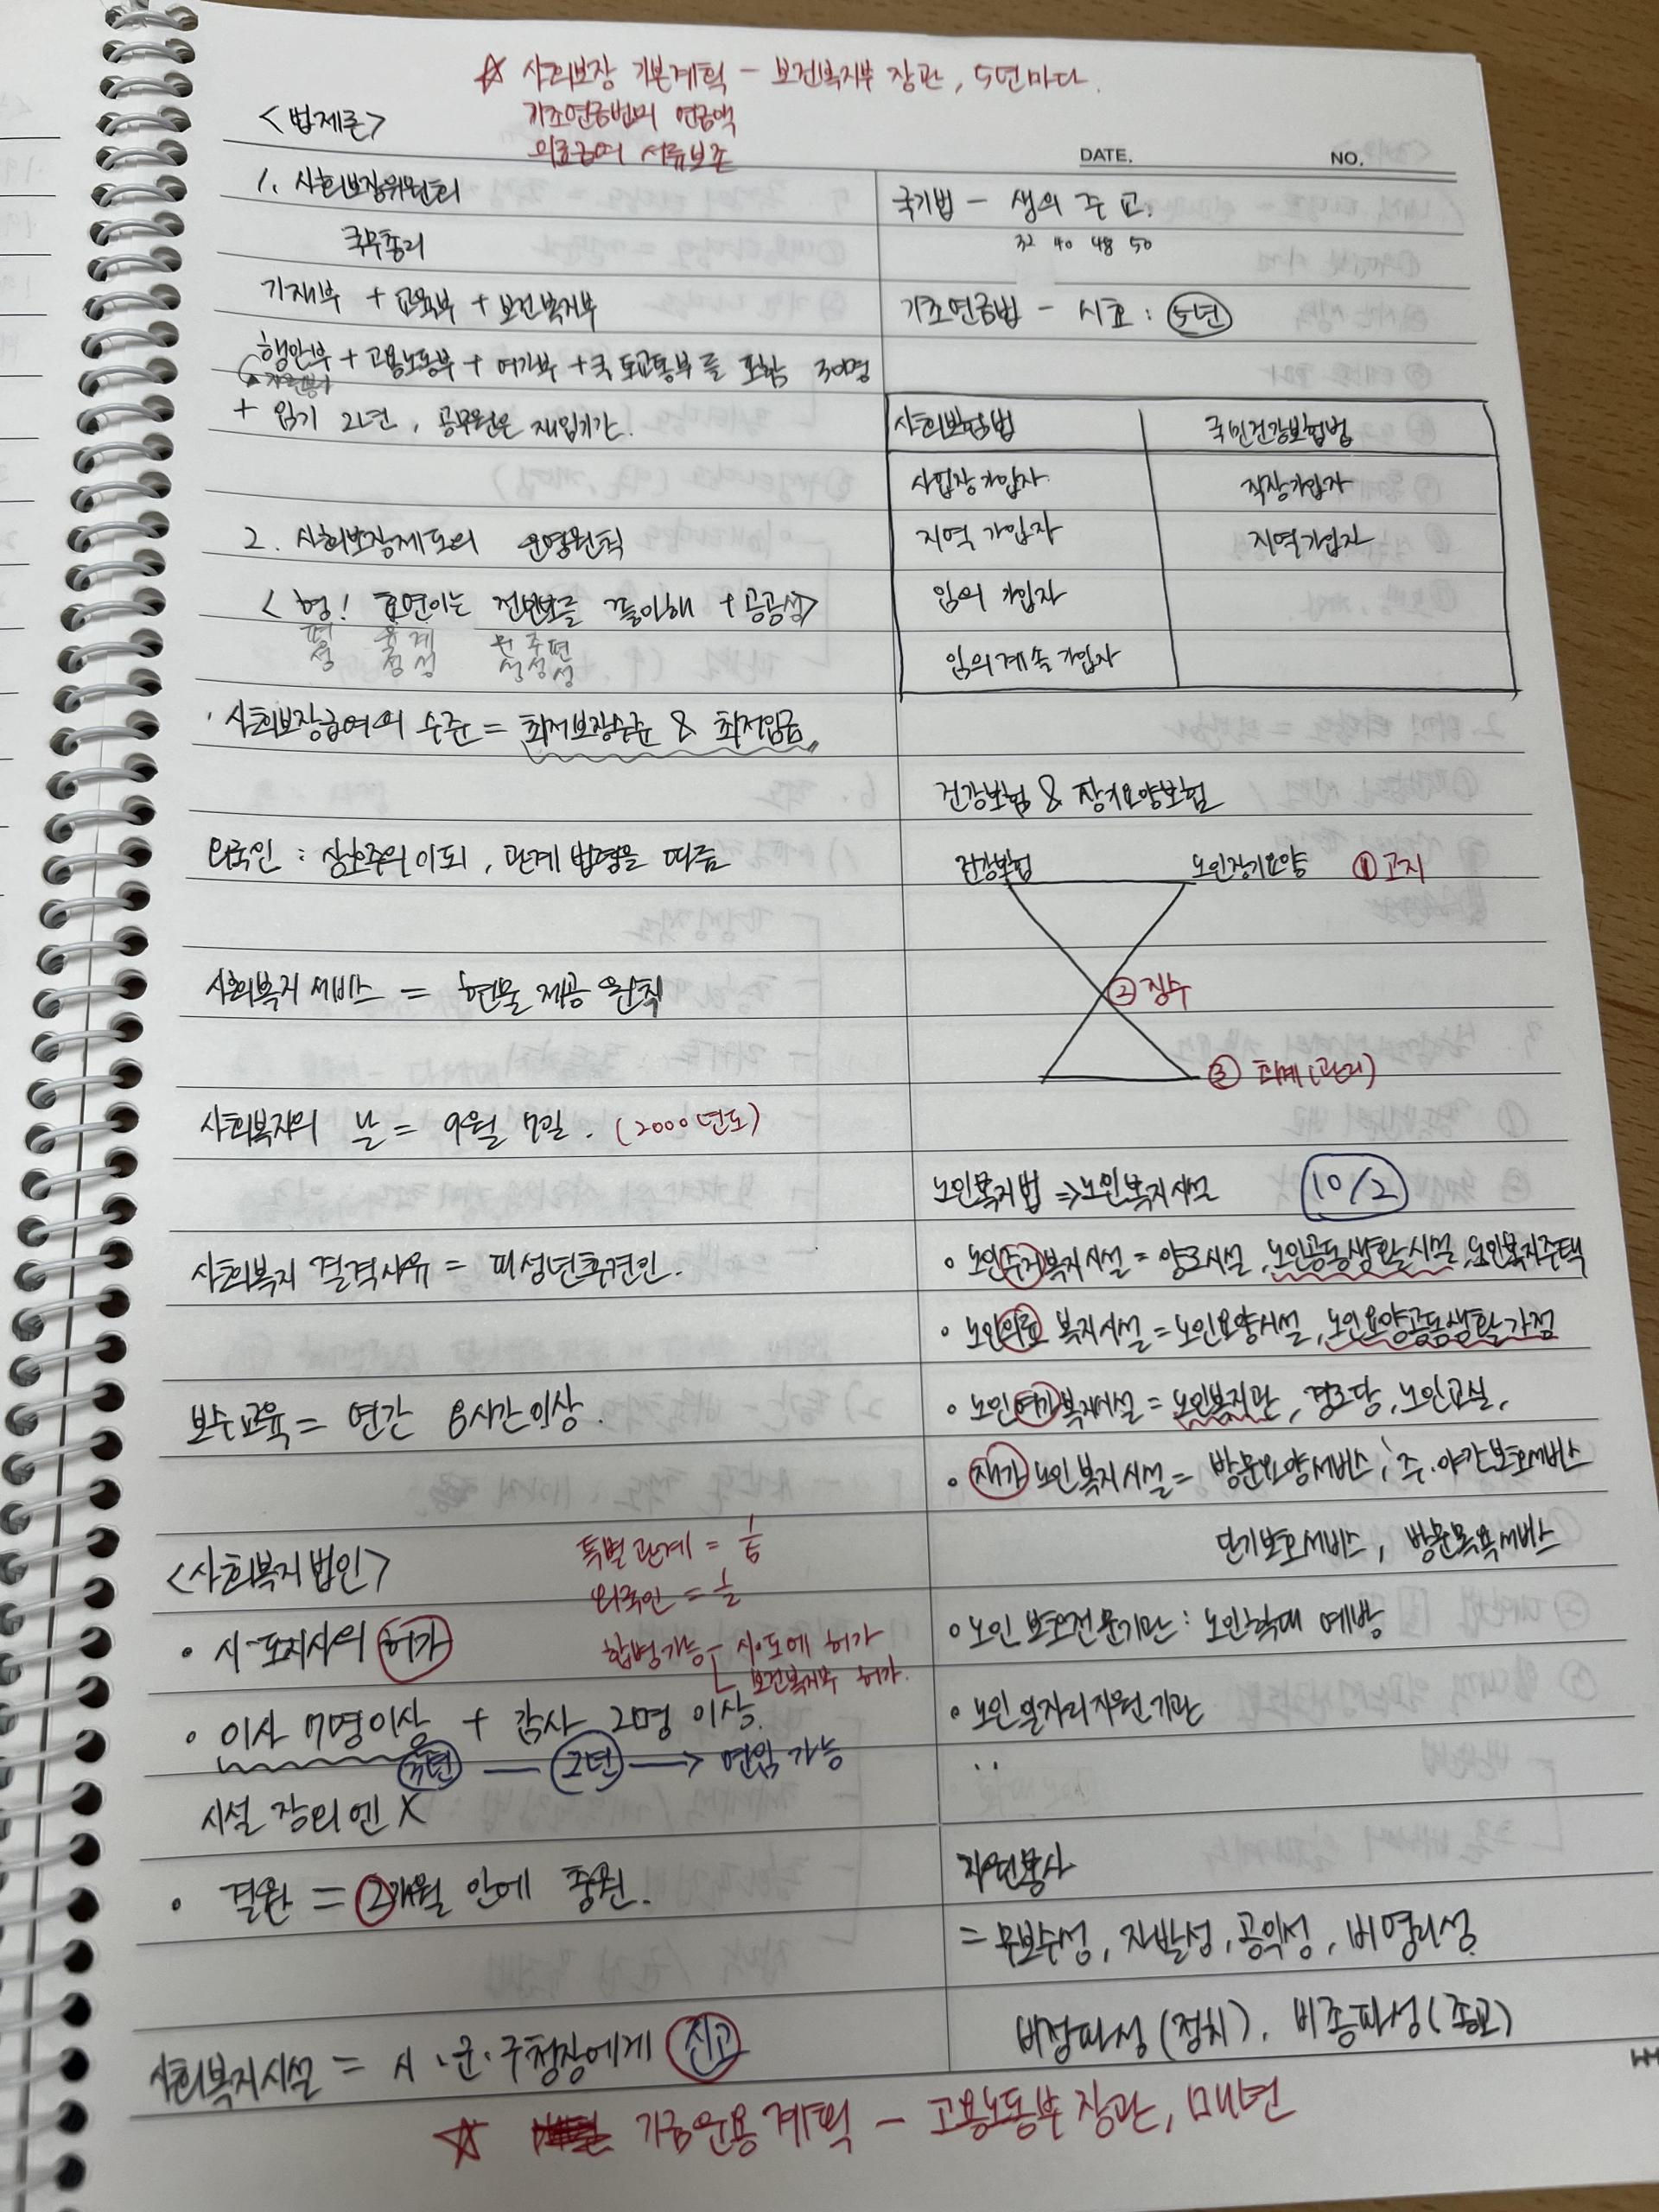 ☆ 사회보장 기본계획 - 보건복지부 장관, 5년마다.
기초연금법의 연금액
의료급여 서류보존
<법제론>
DATE.
NO.
1. 사회보장위원회
국무총리
기재부 + 교육부 + 보건복지부
행안부 + 고용노동부 + 여가부 + 국토교통부를 포함 30명
+ 임기 2년, 공무원은 재임기간.
2. 사회보장제도의 운영원칙
< 형! 효연이는 전보를 좋아해 + 공공성>
평 율계 문주편
성 성성 성성성
· 사회보장급여의 수준 = 최저보장수준 & 최저임금
외국인 : 상호주의이되, 관계 법령을 따름
사회복지 서비스 = 현물 제공 원칙
사회복지의 날 = 9월 7일. (2000년도)
사회복지 결격사유 = 피성년후견인.
보수교육 = 연간 8시간 이상.
<사회복지법인>
특별관계 = 1/5
외국인 = 1/2
합병가능 - 시·도에 허가
보건복지부 허가.
· 시·도지사의 허가
· 이사 7명이상 + 감사 2명 이상.
3년 — 2년 → 연임 가능
시설 장외엔 X
· 결원 = 2개월 안에 충원.
사회복지시설 = 시·군·구청장에게 신고
국기법 - 생 의 주 교.
32 40 48 50
기초연금법 - 시효 : 5년
사회보험법 국민건강보험법
사업장가입자 직장가입자
지역 가입자 지역가입자
임의 가입자
임의계속가입자
건강보험 & 장기요양보험
건강보험 노인장기요양 ① 고지
② 징수
③ 회계(관리)
노인복지법 ⇒ 노인복지시설 10/2
· 노인주거복지시설 = 양로시설, 노인공동생활시설, 노인복지주택
· 노인의료 복지시설 = 노인요양시설, 노인요양공동생활가정
· 노인여가복지시설 = 노인복지관, 경로당, 노인교실,
· 재가 노인복지시설 = 방문요양서비스, 주·야간보호서비스
단기보호서비스, 방문목욕서비스
· 노인 보호전문기관 : 노인학대 예방
· 노인일자리지원기관
자원봉사
= 무보수성, 자발성, 공익성, 비영리성
비정파성(정치), 비종파성(종교)
☆ 기금운용계획 - 고용노동부 장관, 매년